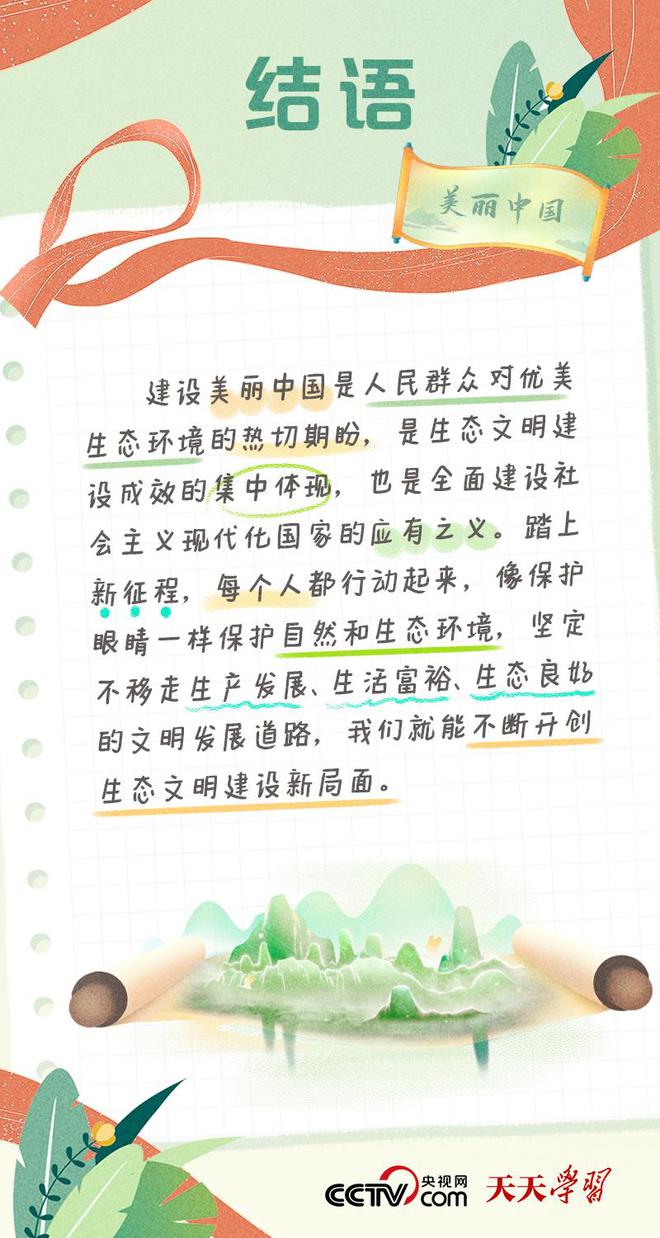 结语
美丽中国
建设美丽中国是人民群众对优美
生态环境的热切期盼，是生态文明建
设成效的集中体现，也是全面建设社
会主义现代化国家的应有之义。踏上
新征程，每个人都行动起来，像保护
眼睛一样保护自然和生态环境，坚定
不移走生产发展、生活富裕、生态良好
的文明发展道路，我们就能不断开创
生态文明建设新局面。
CCTV 央视网 com 天天学習